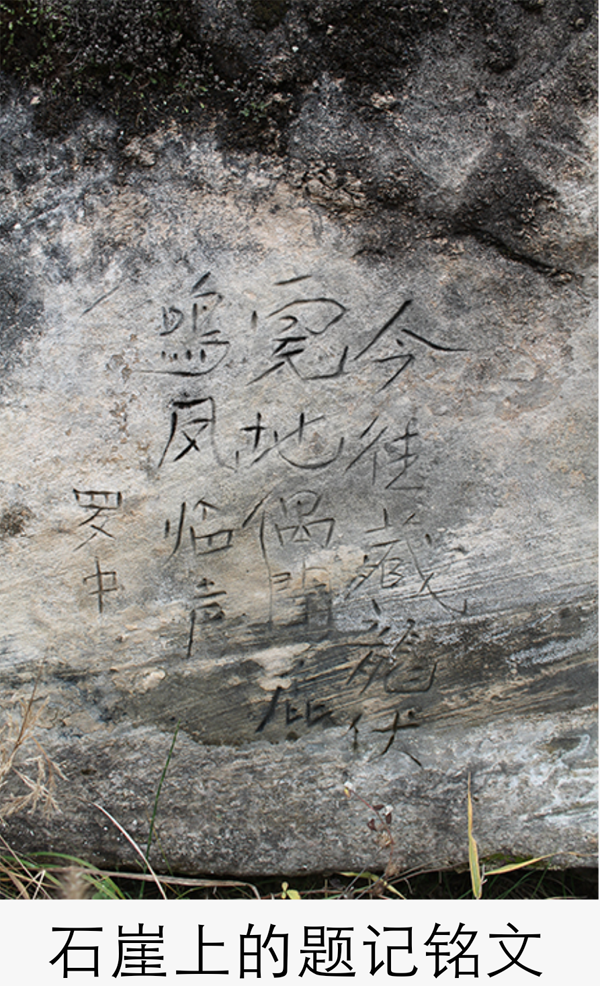 今往藏龍伏
虎地偶聞鹿
鳴凤临声
罗中
石崖上的题记铭文